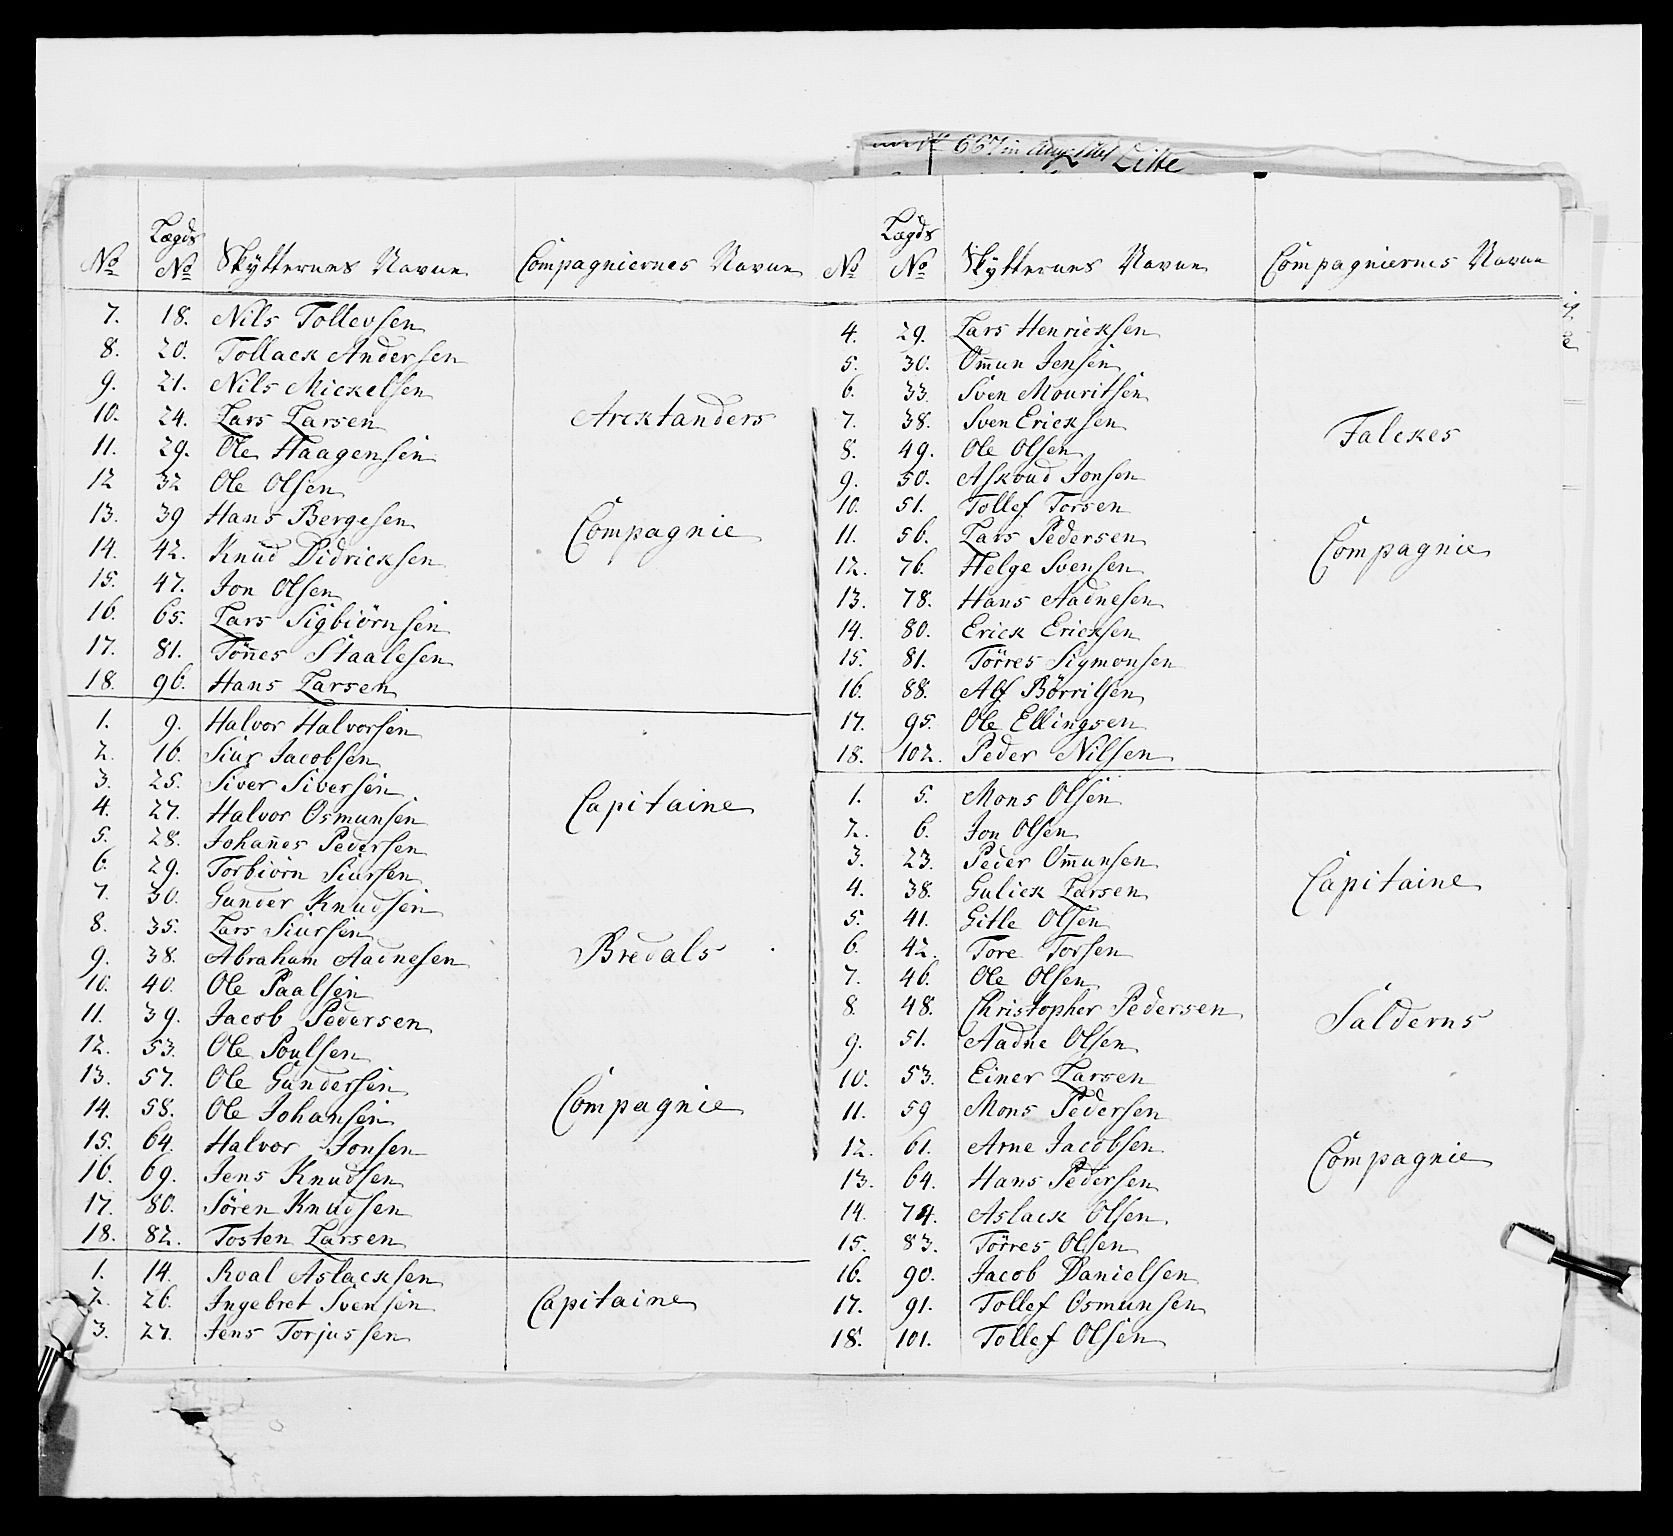 667 in Aug Liste
Lægds
No No Skytternes Navne Compagniernes Navne
7. 18. Nils Tollevsen
8. 20. Tollack Andersen
9. 21. Nils Mickelsen
10. 24. Lars Larsen Arcktanders
11. 29. Ole Haagensen
12 32 Ole Olsen
13. 39 Hans Bergesen Compagnie
14. 42. Knud Didricksen
15. 47. Jon Olsen
16. 65. Lars Sigbiørnsen
17. 81. Tönnes Staalesen
18. 96. Hans Larsen
1. 9. Halvor Halvorsen
2. 16. Siur Jacobsen
3. 25. Siver Siversen Capitaine
4. 27. Halvor Osmunsen
5. 28. Johannes Pedersen
6. 29. Torbiörn Siursen
7. 30. Gunder Knudsen
8. 35. Lars Siursen Bredals
9. 38. Abraham Aadnesen
10. 40. Ole Paalsen
11. 39. Jacob Pedersen
12. 53. Ole Poulsen
13. 57. Ole Gundersen Compagnie
14. 58. Ole Johansen
15. 64. Halvor Jonsen
16. 69. Jens Knudsen
17. 80. Sören Knudsen
18. 82. Tosten Larsen
1. 14. Roal Aslacksen
2. 26. Ingebret Svensen Capitaine
3. 27. Jens Torjussen
Lægds
No No Skytternes Navne Compagniernes Navne
4. 29. Lars Henricksen
5. 30. Ommun Jensen
6. 33. Sven Mouritsen
7. 38. Sven Ericksen Falckes
8. 49. Ole Olsen
9. 50. Askoud Jonsen
10. 51. Tollef Torsen
11. 56. Lars Pedersen Compagnie
12. 76. Helge Svensen
13. 78. Hans Aadnesen
14. 80. Erick Ericksen
15. 81. Törres Sigmonsen
16. 88. Alf Börrilsen
17. 95. Ole Ellingsen
18. 102. Peder Nilsen
1. 5. Mons Olsen
2. 6. Jon Olsen
3. 23. Peder Ommunsen
4. 38. Gulick Larsen Capitaine
5. 41. Gitle Olsen
6. 42. Tore Torsen
7. 46. Ole Olsen
8. 48. Christopher Pedersen Salderns
9. 51. Aadne Olsen
10. 53. Einer Larsen
11. 59 Mons Pedersen
12. 61. Arne Jacobsen Compagnie
13. 64. Hans Pedersen
14. 74. Aslack Olsen
15. 83. Törres Olsen
16. 90. Jacob Danielsen
17. 91. Tollef Osmunsen
18. 101. Tollef Olsen